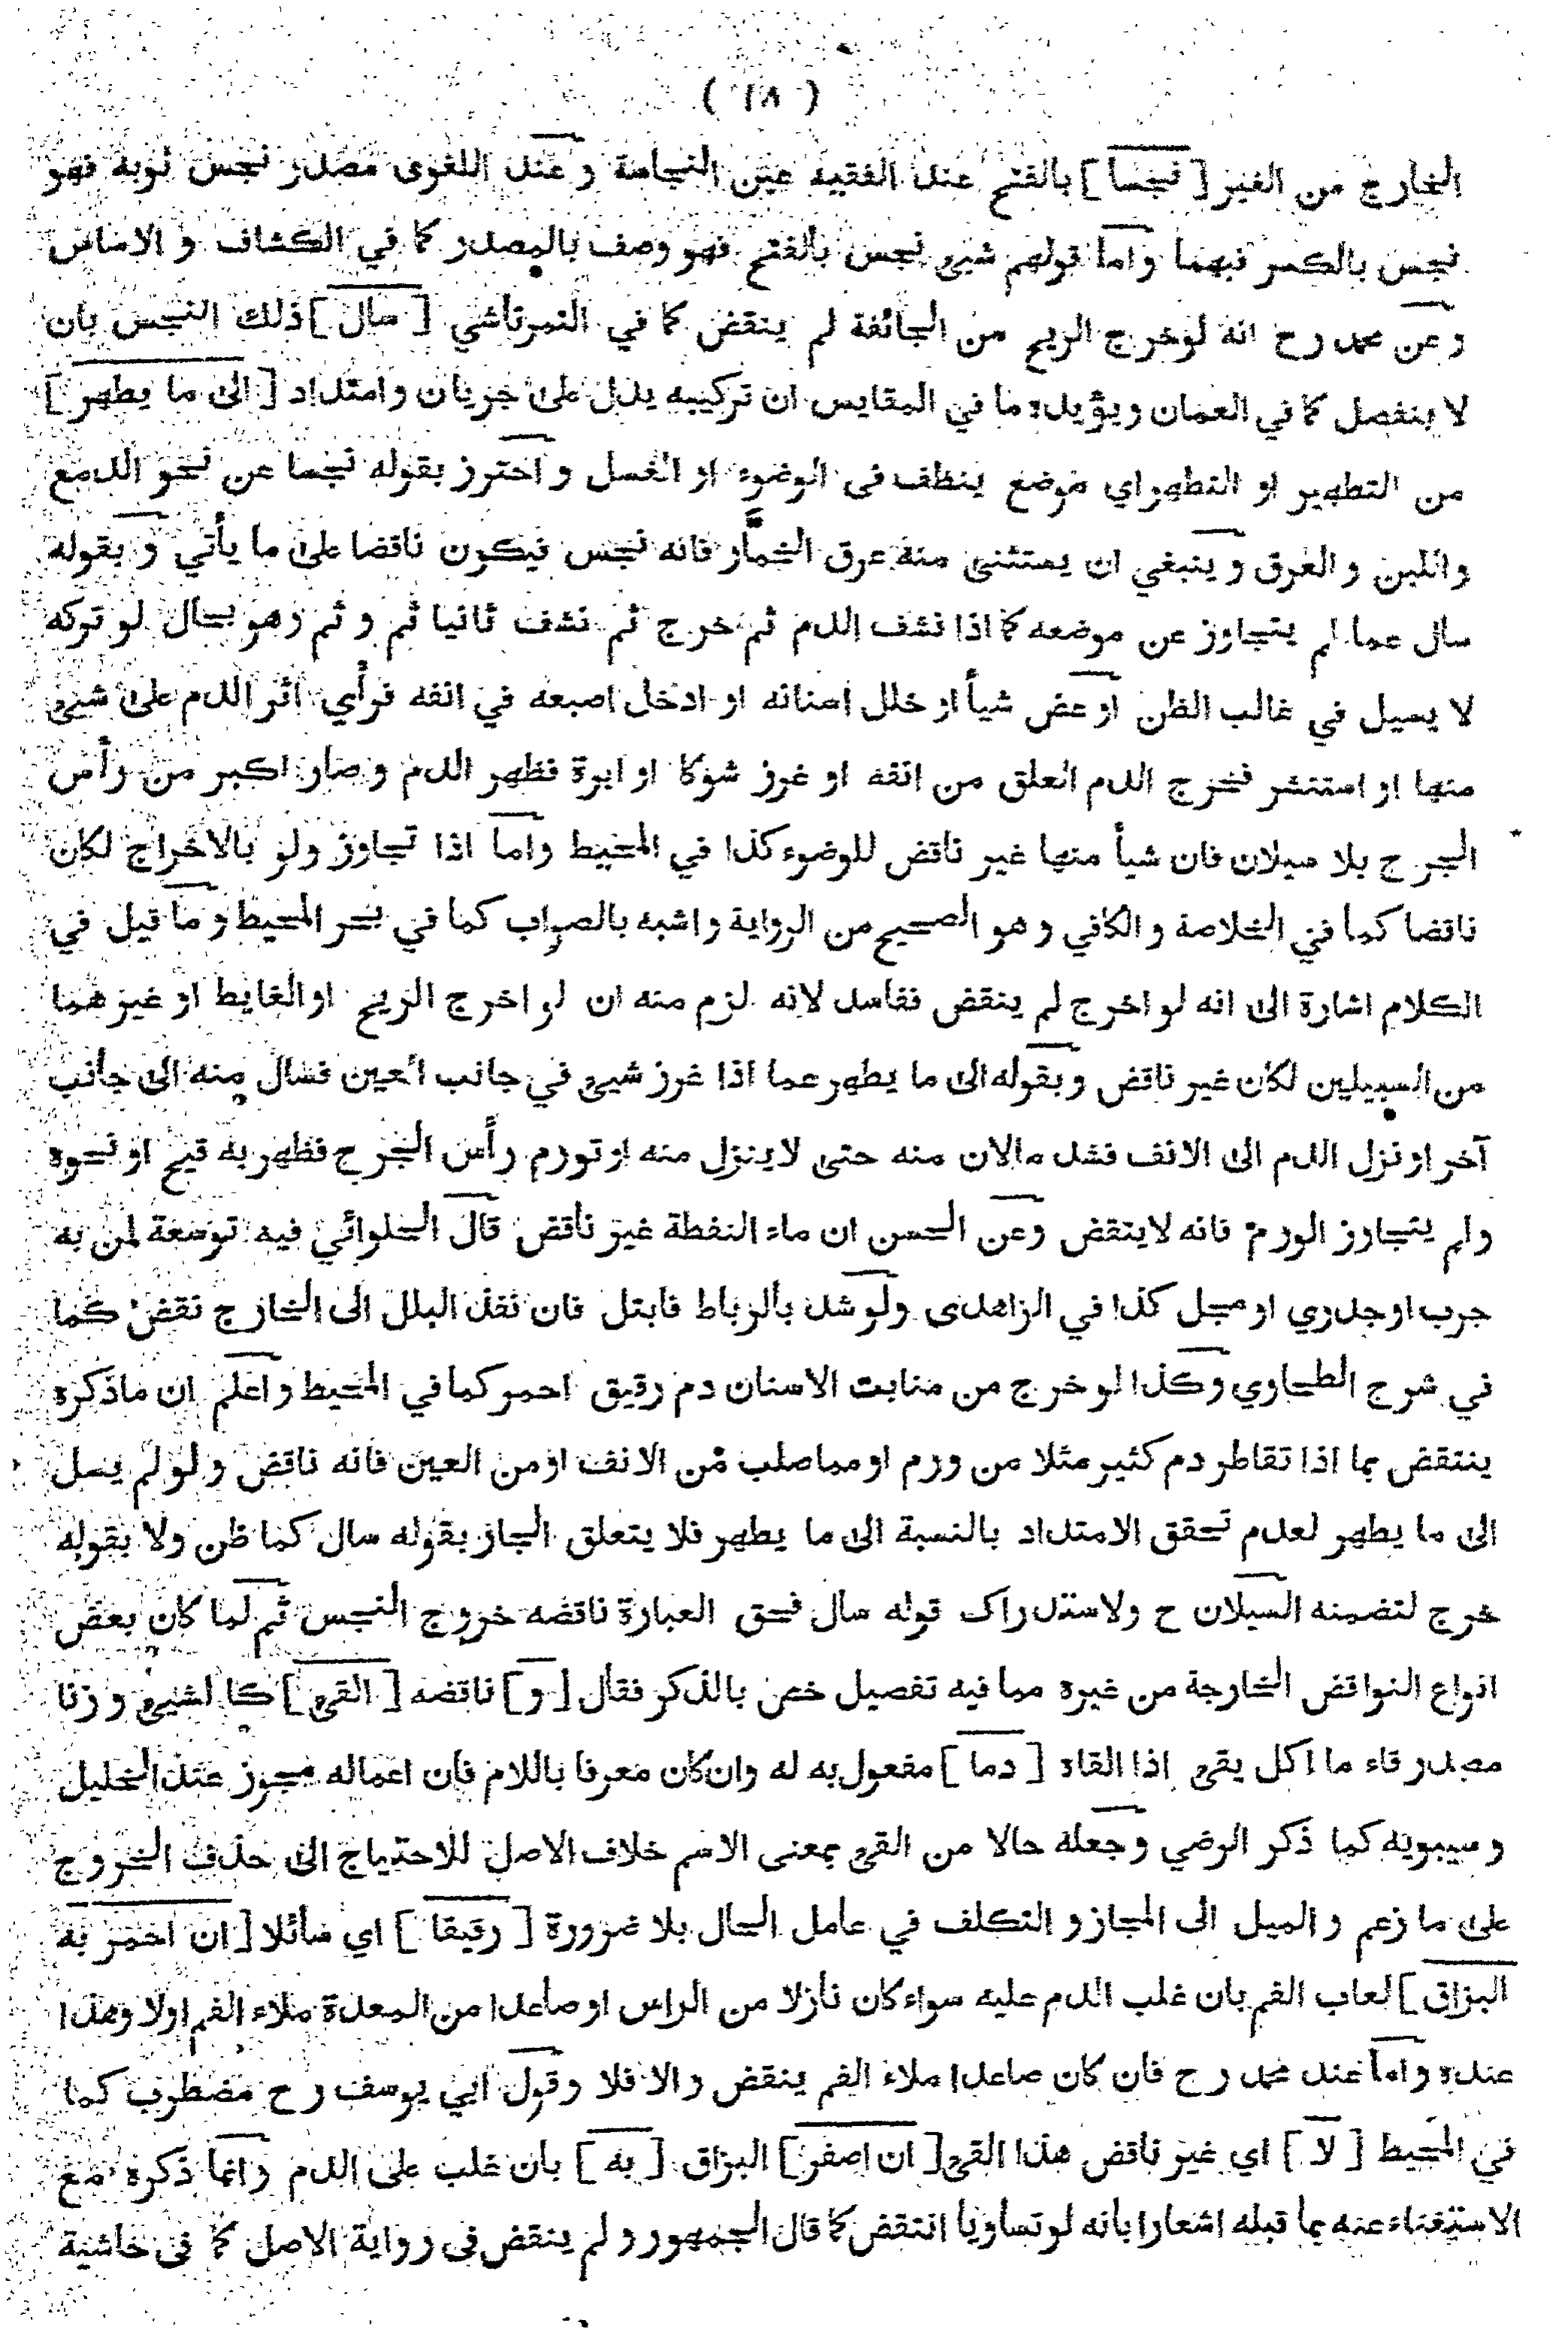 ( ١٨ )
الخارج من الغير [ نجسا ] بالفتح عند الفقيه عين النجاسة و عند اللغوى مصدر نجس ثوبه فهو
نجس بالكسر فيهما واما قولهم شيئ نجس بالفتح فهو وصف بالمصدر كما في الكشاف و الاساس
وعن محمد رح انه لوخرج الريح من الجائفة لم ينقض كما في التمرتاشي [ سال ] ذلك النجس بان
لا ينفصل كما في العمان ويؤيده ما في المقايس ان تركيبه يدل على جريان وامتداد [ الى ما يطهر ]
من التطهير او التطهر اي موضع ينظف فى الوضوء او الغسل و احترز بقوله نجسا عن نحو الدمع
واللبن و العرق و ينبغي ان يستثنى منه عرق الخمّار فانه نجس فيكون ناقضا على ما يأتي و بقوله
سال عما لم يتجاوز عن موضعه كما اذا نشف الدم ثم خرج ثم نشف ثانيا ثم و ثم وهو بحال لو تركه
لا يسيل في غالب الظن او عض شيأ او خلل اسنانه او ادخل اصبعه في انفه فرأي اثر الدم على شيئ
منها او استنشر فخرج الدم العلق من انفه او غرز شوكا او ابرة فظهر الدم و صار اكبر من رأس
الجرح بلا سيلان فان شيأ منها غير ناقض للوضوء كذا في المحيط واما اذا تجاوز ولو بالاخراج لكان
ناقضا كما في الخلاصة و الكافي و هو الصحيح من الرواية واشبه بالصواب كما في بحر المحيط و ما قيل في
الكلام اشارة الى انه لو اخرج لم ينقض ففاسد لانه لزم منه ان لو اخرج الريح او الغايط او غيرهما
من السبيلين لكان غير ناقض وبقوله الى ما يطهر عما اذا غرز شيئ في جانب العين فسال منه الى جانب
آخر او نزل الدم الى الانف فشد مالان منه حتى لا ينزل منه او تورم رأس الجرح فظهر به قيح او نحوه
ولم يتجاوز الورم فانه لاينقض وعن الحسن ان ماء النفطة غير ناقض قال الحلوائي فيه توسعة لمن به
جرب او جدري او مجل كذا في الزاهدى ولو شد بالرباط فابتل فان نفذ البلل الى الخارج نقض كما
في شرح الطحاوي وكذا لو خرج من منابت الاسنان دم رقيق احمر كما في المحيط و اعلم ان ماذكره
ينتقض بما اذا تقاطر دم كثير مثلا من ورم او مما صلب من الانف او من العين فانه ناقض و لو لم يسل
الى ما يطهر لعدم تحقق الامتداد بالنسبة الى ما يطهر فلا يتعلق الجار بقوله سال كما ظن ولا بقوله
خرج لتضمنه السيلان ح ولاستدراك قوله سال فحق العبارة ناقضه خروج النجس ثم لما كان بعض
انواع النواقض الخارجة من غيره مما فيه تفصيل خص بالذكر فقال [ و ] ناقضه [ القيئ ] كالشيئ وزنا
مصدر قاء ما اكل يقئ اذا القاه [ دما ] مفعول به له وان كان معرفا باللام فان اعماله مجوز عند الخليل
و سيبويه كما ذكر الرضي وجعله حالا من القيئ بمعنى الاسم خلاف الاصل للاحتياج الى حذف الخروج
على ما زعم و الميل الى المجاز و التكلف في عامل الحال بلا ضرورة [ رقيقا ] اي سائلا [ ان احمر به
البزاق ] لعاب الفم بان غلب الدم عليه سواء كان نازلا من الراس او صاعدا من المعدة ملاء الفم اولا وهذا
عنده واما عند محمد رح فان كان صاعدا ملاء الفم ينقض والا فلا وقول ابي يوسف رح مضطرب كما
في المحيط [ لا ] اي غير ناقض هذا القيئ [ ان اصفر ] البزاق [ به ] بان غلب على الدم وانما ذكره مع
الاستغناء عنه بما قبله اشعارا بانه لو تساويا انتقض كما قال الجمهور و لم ينقض فى رواية الاصل كما فى حاشية